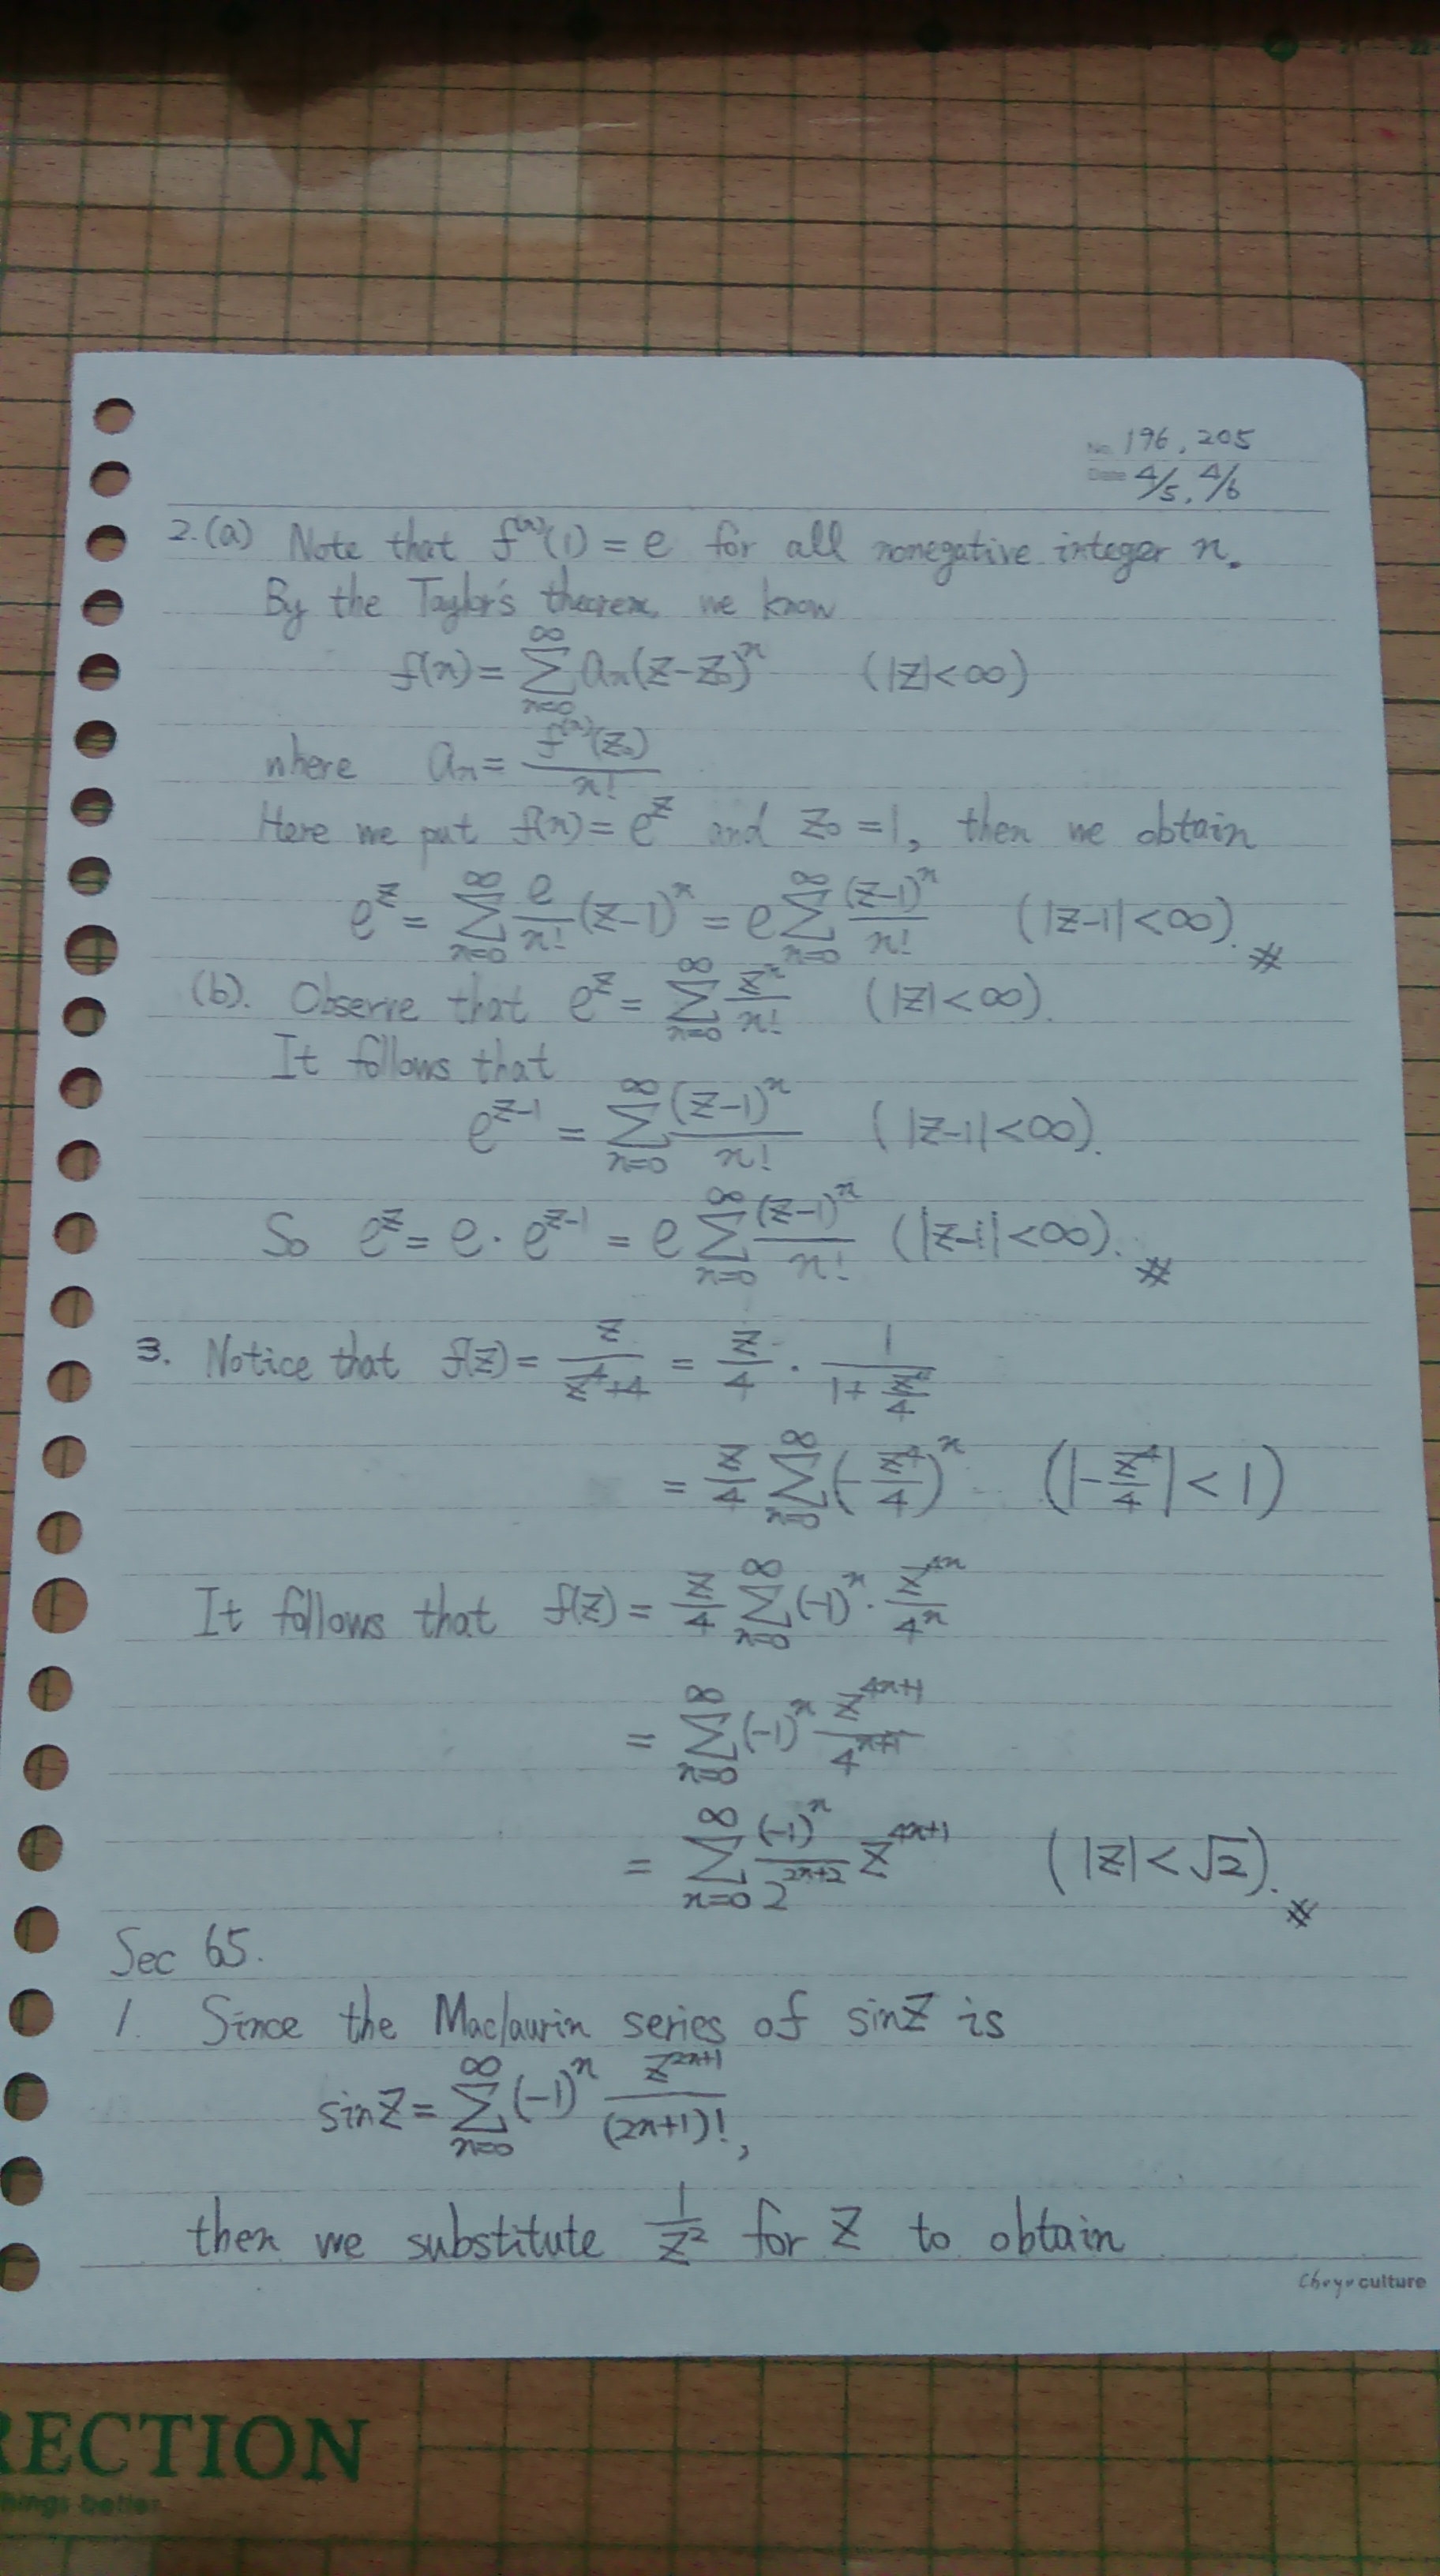 No. 196, 205
Date 4/5, 4/6
2.(a) Note that f⁽ⁿ⁾(1) = e for all nonegative integer n.
By the Taylor's theorem, we know
f(n) = ∑_{n=0}^{∞} aₙ(z-z₀)ⁿ (|z|<∞)
where aₙ = f⁽ⁿ⁾(z₀)/n!
Here we put f(n) = e^z and z₀ = 1, then we obtain
e^z = ∑_{n=0}^{∞} e/n! (z-1)ⁿ = e ∑_{n=0}^{∞} (z-1)ⁿ/n! (|z-1|<∞). #
(b). Observe that e^z = ∑_{n=0}^{∞} zⁿ/n! (|z|<∞).
It follows that
e^{z-1} = ∑_{n=0}^{∞} (z-1)ⁿ/n! (|z-1|<∞).
So e^z = e · e^{z-1} = e ∑_{n=0}^{∞} (z-1)ⁿ/n! (|z-1|<∞). #
3. Notice that f(z) = z/(z⁴+4) = z/4 · 1/(1+z⁴/4)
= z/4 ∑_{n=0}^{∞} (-z⁴/4)ⁿ (|-z⁴/4| < 1)
It follows that f(z) = z/4 ∑_{n=0}^{∞} (-1)ⁿ · z^{4n}/4ⁿ
= ∑_{n=0}^{∞} (-1)ⁿ z^{4n+1}/4^{n+1}
= ∑_{n=0}^{∞} (-1)ⁿ/2^{2n+2} z^{4n+1} (|z|<√2). #
Sec 65.
1. Since the Maclaurin series of sinz is
sinz = ∑_{n=0}^{∞} (-1)ⁿ z^{2n+1}/(2n+1)!,
then we substitute 1/z² for z to obtain
culture
RECTION
things better